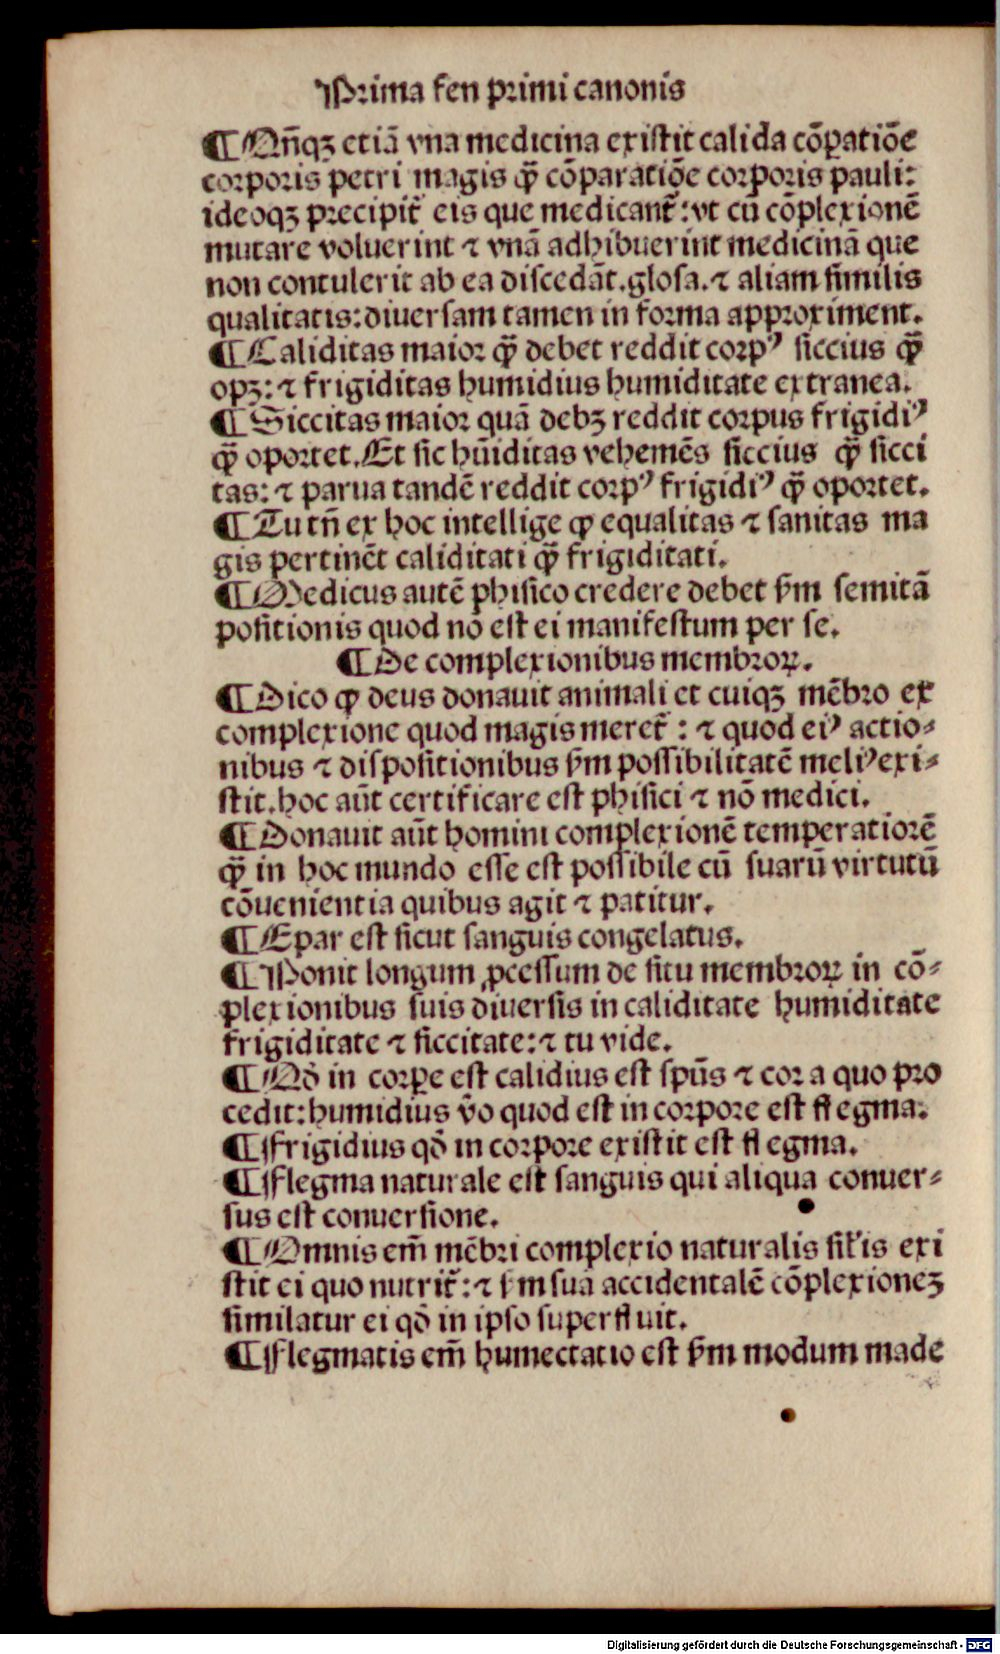 Prima fen primi canonis
¶ Qn̄qꝫ etiā vna medicina existit calida cōꝑatiōe
corporis petri magis qͣ̄ cōparatiōe corporis pauli:
ideoqꝫ precipit᷑ eis que medicant᷑: vt cū cōplexionē
mutare voluerint ⁊ vnā adhibuerint medicinā que
non contulerit ab ea discedāt. glosa. ⁊ aliam similis
qualitatis: diuersam tamen in forma approximent.
¶ Caliditas maior qͣ̄ debet reddit corpꝰ siccius qͣ̄
opꝫ: ⁊ frigiditas humidius humiditate extranea.
¶ Siccitas maior quā debꝫ reddit corpus frigidiꝰ
qͣ̄ oportet. Et sic hūiditas vehemēs siccius qͣ̄ sicci
tas: ⁊ parua tandē reddit corpꝰ frigidiꝰ qͣ̄ oportet.
¶ Tu tn̄ ex hoc intellige ꝙ equalitas ⁊ sanitas ma
gis pertinēt caliditati qͣ̄ frigiditati.
¶ Medicus autē phisico credere debet ẜm semitā
positionis quod nō est ei manifestum per se.
¶ De complexionibus membroꝝ.
¶ Dico ꝙ deus donauit animali et cuiqꝫ mēbro ex
complexione quod magis meret᷑: ⁊ quod eiꝰ actio-
nibus ⁊ dispositionibus ẜm possibilitatē meliꝰ exi-
stit. hoc aūt certificare est phisici ⁊ nō medici.
¶ Donauit aūt homini complexionē temperatiorē
qͣ̄ in hoc mundo esse est possibile cū suarū virtutū
cōuenientia quibus agit ⁊ patitur.
¶ Epar est sicut sanguis congelatus.
¶ Ponit longum ꝓcessum de situ membroꝝ in cō-
plexionibus suis diuersis in caliditate humiditate
frigiditate ⁊ siccitate: ⁊ tu vide.
¶ Qd̄ in corꝑe est calidius est spūs ⁊ cor a quo pro
cedit: humidius v̄o quod est in corpore est flegma.
¶ Frigidius qd̄ in corpore existit est flegma.
¶ Flegma naturale est sanguis qui aliqua conuer-
sus est conuersione.
¶ Omnis em̄ mēbri complexio naturalis sil̄is exi
stit ei quo nutrit᷑: ⁊ ẜm sua accidentalē cōplexioneꝫ
similatur ei qd̄ in ipso superfluit.
¶ Flegmatis em̄ humectatio est ẜm modum made
Digitalisierung gefördert durch die Deutsche Forschungsgemeinschaft - DFG